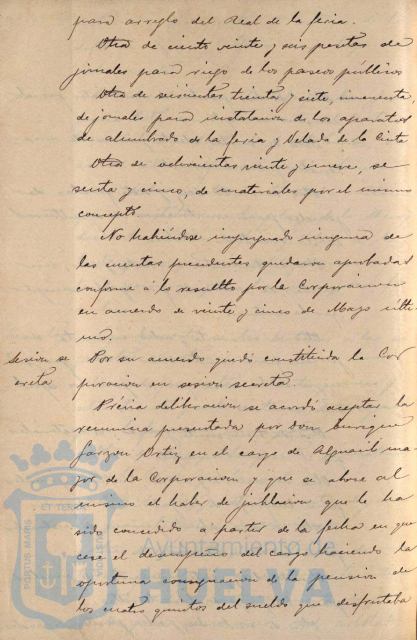 para arreglo del Real de la feria.
Otra de ciento veinte y seis pesetas de
jornales para riego de los paseos públicos
Otra de seiscientas treinta y siete, cincuenta
de jornales para instalacion de los aparatos
de alumbrado de la feria y Velada de la Cinta
Otra de ochocientas veinte y nueve, se
senta y cinco, de materiales por el mismo
concepto
No habiéndose impugnado ninguna de
las cuentas precedentes quedaron aprobadas
conforme a lo resuelto por la Corporacion
en acuerdo de veinte y cinco de Mayo últi
mo.
Sesion se
creta
Por su acuerdo quedó constituida la Cor
poracion en sesion secreta.
Prévia deliberacion se acordó aceptar la
renuncia presentada por Don Enrique
Garzon Ortiz en el cargo de Alguacil ma
yor de la Corporacion y que se abone al
mismo el haber de jubilacion que le ha
sido concedido a partir de la fecha en que
cese el desempeño del cargo haciendo la
oportuna consignacion de la pension de
los cuatro quintos del sueldo que disfrutaba
PORTUS MARIS
ET TERRAE
Ayuntamiento de
HUELVA